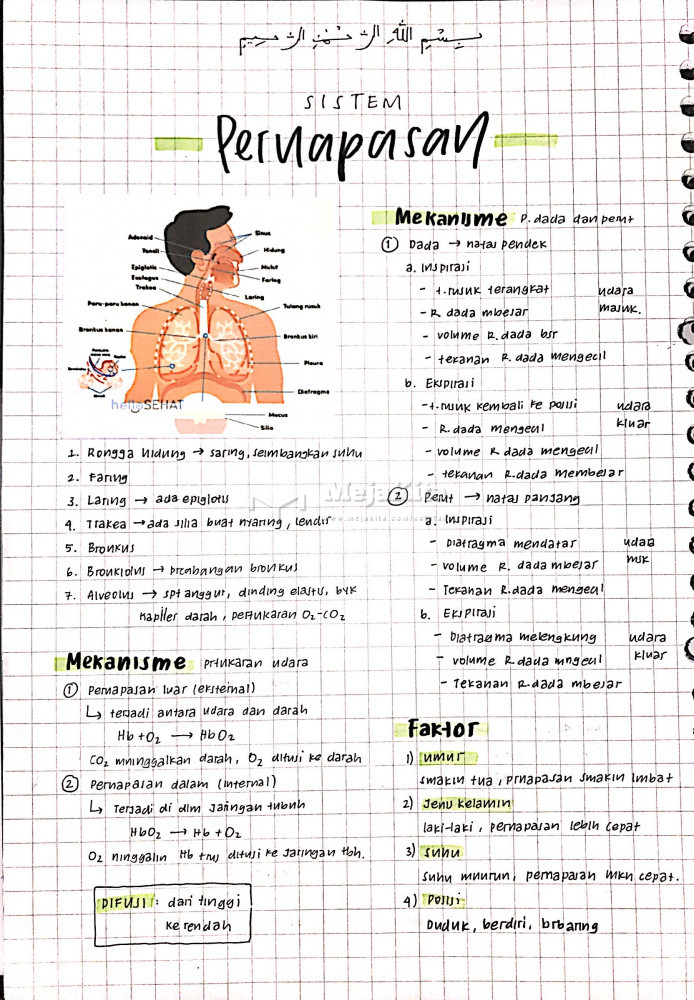 بِسْمِ اللهِ الرَّحْمٰنِ الرَّحِيمِ
SISTEM
Pernapasan
Adenoid
Tonsil
Epiglotis
Esofagus
Trakea
Paru-paru kanan
Bronkus kanan
Sinus
Hidung
Mulut
Faring
Laring
Tulang rusuk
Bronkus kiri
Pleura
Diafragma
Mucus
Silia
helloSEHAT
1. Rongga hidung → saring, seimbangkan suhu
2. Faring
3. Laring → ada epiglotis
4. Trakea → ada silia buat nyaring, lendir
5. Bronkus
6. Bronkiolus → prcabangan bronkus
7. Alveolus → sptanggur, dinding elastis, byk
kapiler darah, pertukaran O2-CO2
Mekanisme prtukaran udara
① Pernapasan luar (eksternal)
↳ terjadi antara udara dan darah
Hb + O2 → HbO2
CO2 mninggalkan darah, O2 difusi ke darah
② Pernapasan dalam (internal)
↳ Terjadi di dlm jaringan tubuh
HbO2 → Hb + O2
O2 ninggalin Hb trus difusi ke jaringan tbh.
DIFUSI : dari tinggi
ke rendah
Mekanisme P. dada dan perut
① Dada → nafas pendek
a. Inspirasi
- t. rusuk terangkat
- R dada mbesar
- volume R. dada bsr
- tekanan R. dada mengecil
udara
masuk.
b. Ekspirasi
- t. rusuk kembali ke posisi
- R. dada mengecil
- volume R dada mengecil
- tekanan R.dada membesar
udara
kluar
② Perut → nafas panjang
a. Inspirasi
- Diafragma mendatar
- volume R. dada mbesar
- Tekanan R.dada mengecil
udara
msk
b. Ekspirasi
- Diafragma melengkung
- volume R.dada mngecil
- Tekanan R.dada mbesar
udara
kluar
Faktor
1) umur
smakin tua, prnapasan smakin lmbat
2) Jenis kelamin
laki-laki, pernapasan lebih cepat
3) suhu
suhu mnurun, pernapasan mkn cepat.
4) Posisi
Duduk, berdiri, brbaring
MejaKita